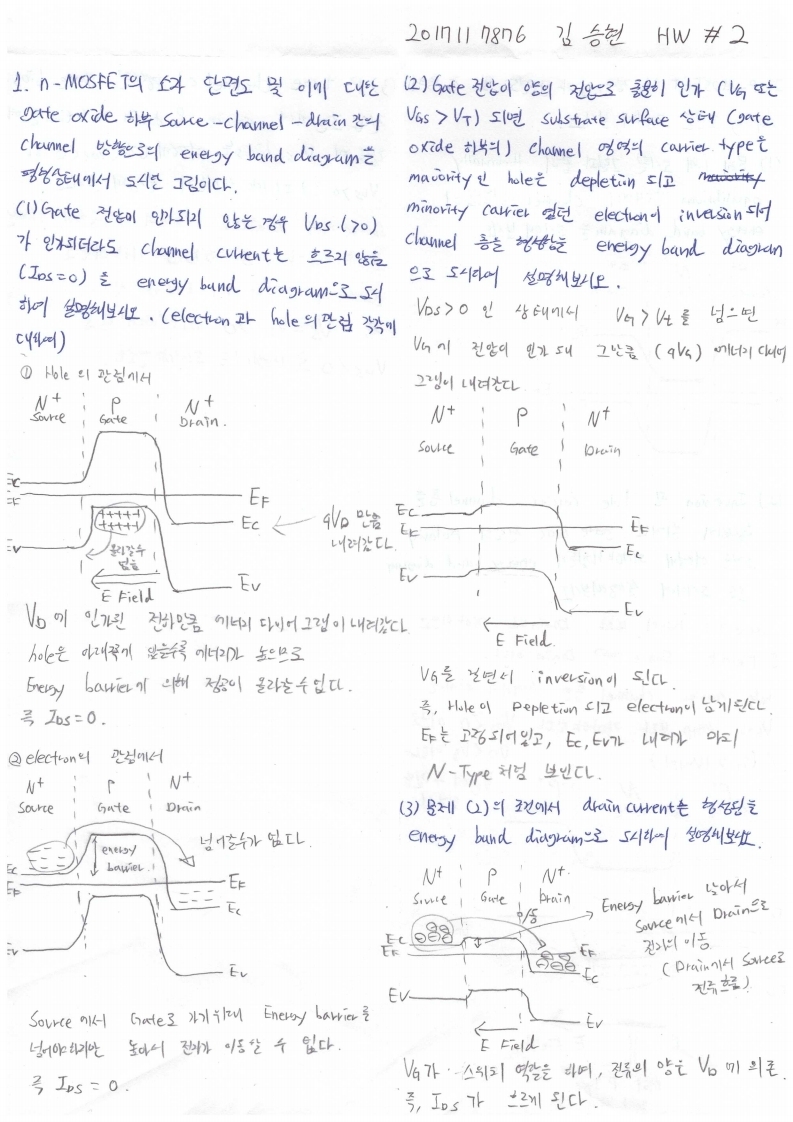 2017117876 김승현 HW #2
1. n-MOSFET의 소자 단면도 및 이에 대한
gate oxide 하부 source-channel-drain 간의
channel 방향으로의 energy band diagram을
평형상태에서 도시한 그림이다.
(1) Gate 전압이 인가되지 않는 경우 VDS (>0)
가 인가되더라도 channel current는 흐르지 않음
(IDS=0)을 energy band diagram으로 도시
하여 설명해보시오. (electron과 hole의 관점 각각에
대하여)
① Hole의 관점에서
N+ P N+
Source Gate Drain.
Ec
EF EF
Ec ← qVD 만큼
내려갔다.
+++++
+++++
올라갈수
없음
Ev
Ev
E Field
VD에 인가된 전하만큼 에너지 다이어그램이 내려갔다.
hole은 아래쪽에 있을수록 에너지가 높으므로
Energy barrier에 의해 정공이 올라올 수 없다.
즉 IDS=0.
② electron의 관점에서
N+ P N+
Source Gate Drain
넘어갈수가 없다.
energy
barrier
Ec
EF EF
Ec
Ev
Ev
Source에서 Gate로 가기위해 Energy barrier를
넘어야하지만 높아서 전자가 이동할 수 없다.
즉 IDS = 0.
(2) Gate 전압이 양의 전압으로 충분히 인가 (VG 또는
VGS > VT) 되면 substrate surface 상태 (gate
oxide 하부의) channel 영역의 carrier type은
majority인 hole은 depletion 되고 majority
minority carrier 였던 electron이 inversion되어
channel 층을 형성함을 energy band diagram
으로 도시하여 설명해보시오.
VDS>0 인 상태에서 VG > Vt를 넘으면
VG에 전압이 인가돼 그만큼 (qVG) 에너지 다이어
그램이 내려간다
N+ P N+
Source Gate Drain
Ec
EF EF
Ec
Ev
Ev
E Field.
VG를 걸면서 inversion이 된다.
즉, Hole이 Depletion 되고 electron이 남게된다.
EF는 고정되어있고, Ec, Ev가 내려가 마치
N-Type처럼 보인다.
(3) 문제 (2)의 조건에서 drain current는 형성됨을
energy band diagram으로 도시하여 설명해보시오.
N+ P N+
Source Gate Drain
이동
Energy barrier 낮아서
Source에서 Drain으로
전자의 이동
(Drain에서 Source로
전류흐름)
Ec
EF EF
Ec
Ev
Ev
E Field
VG가 스위치 역할을 하며, 전류의 양은 VD에 의존.
즉, IDS가 흐르게 된다.